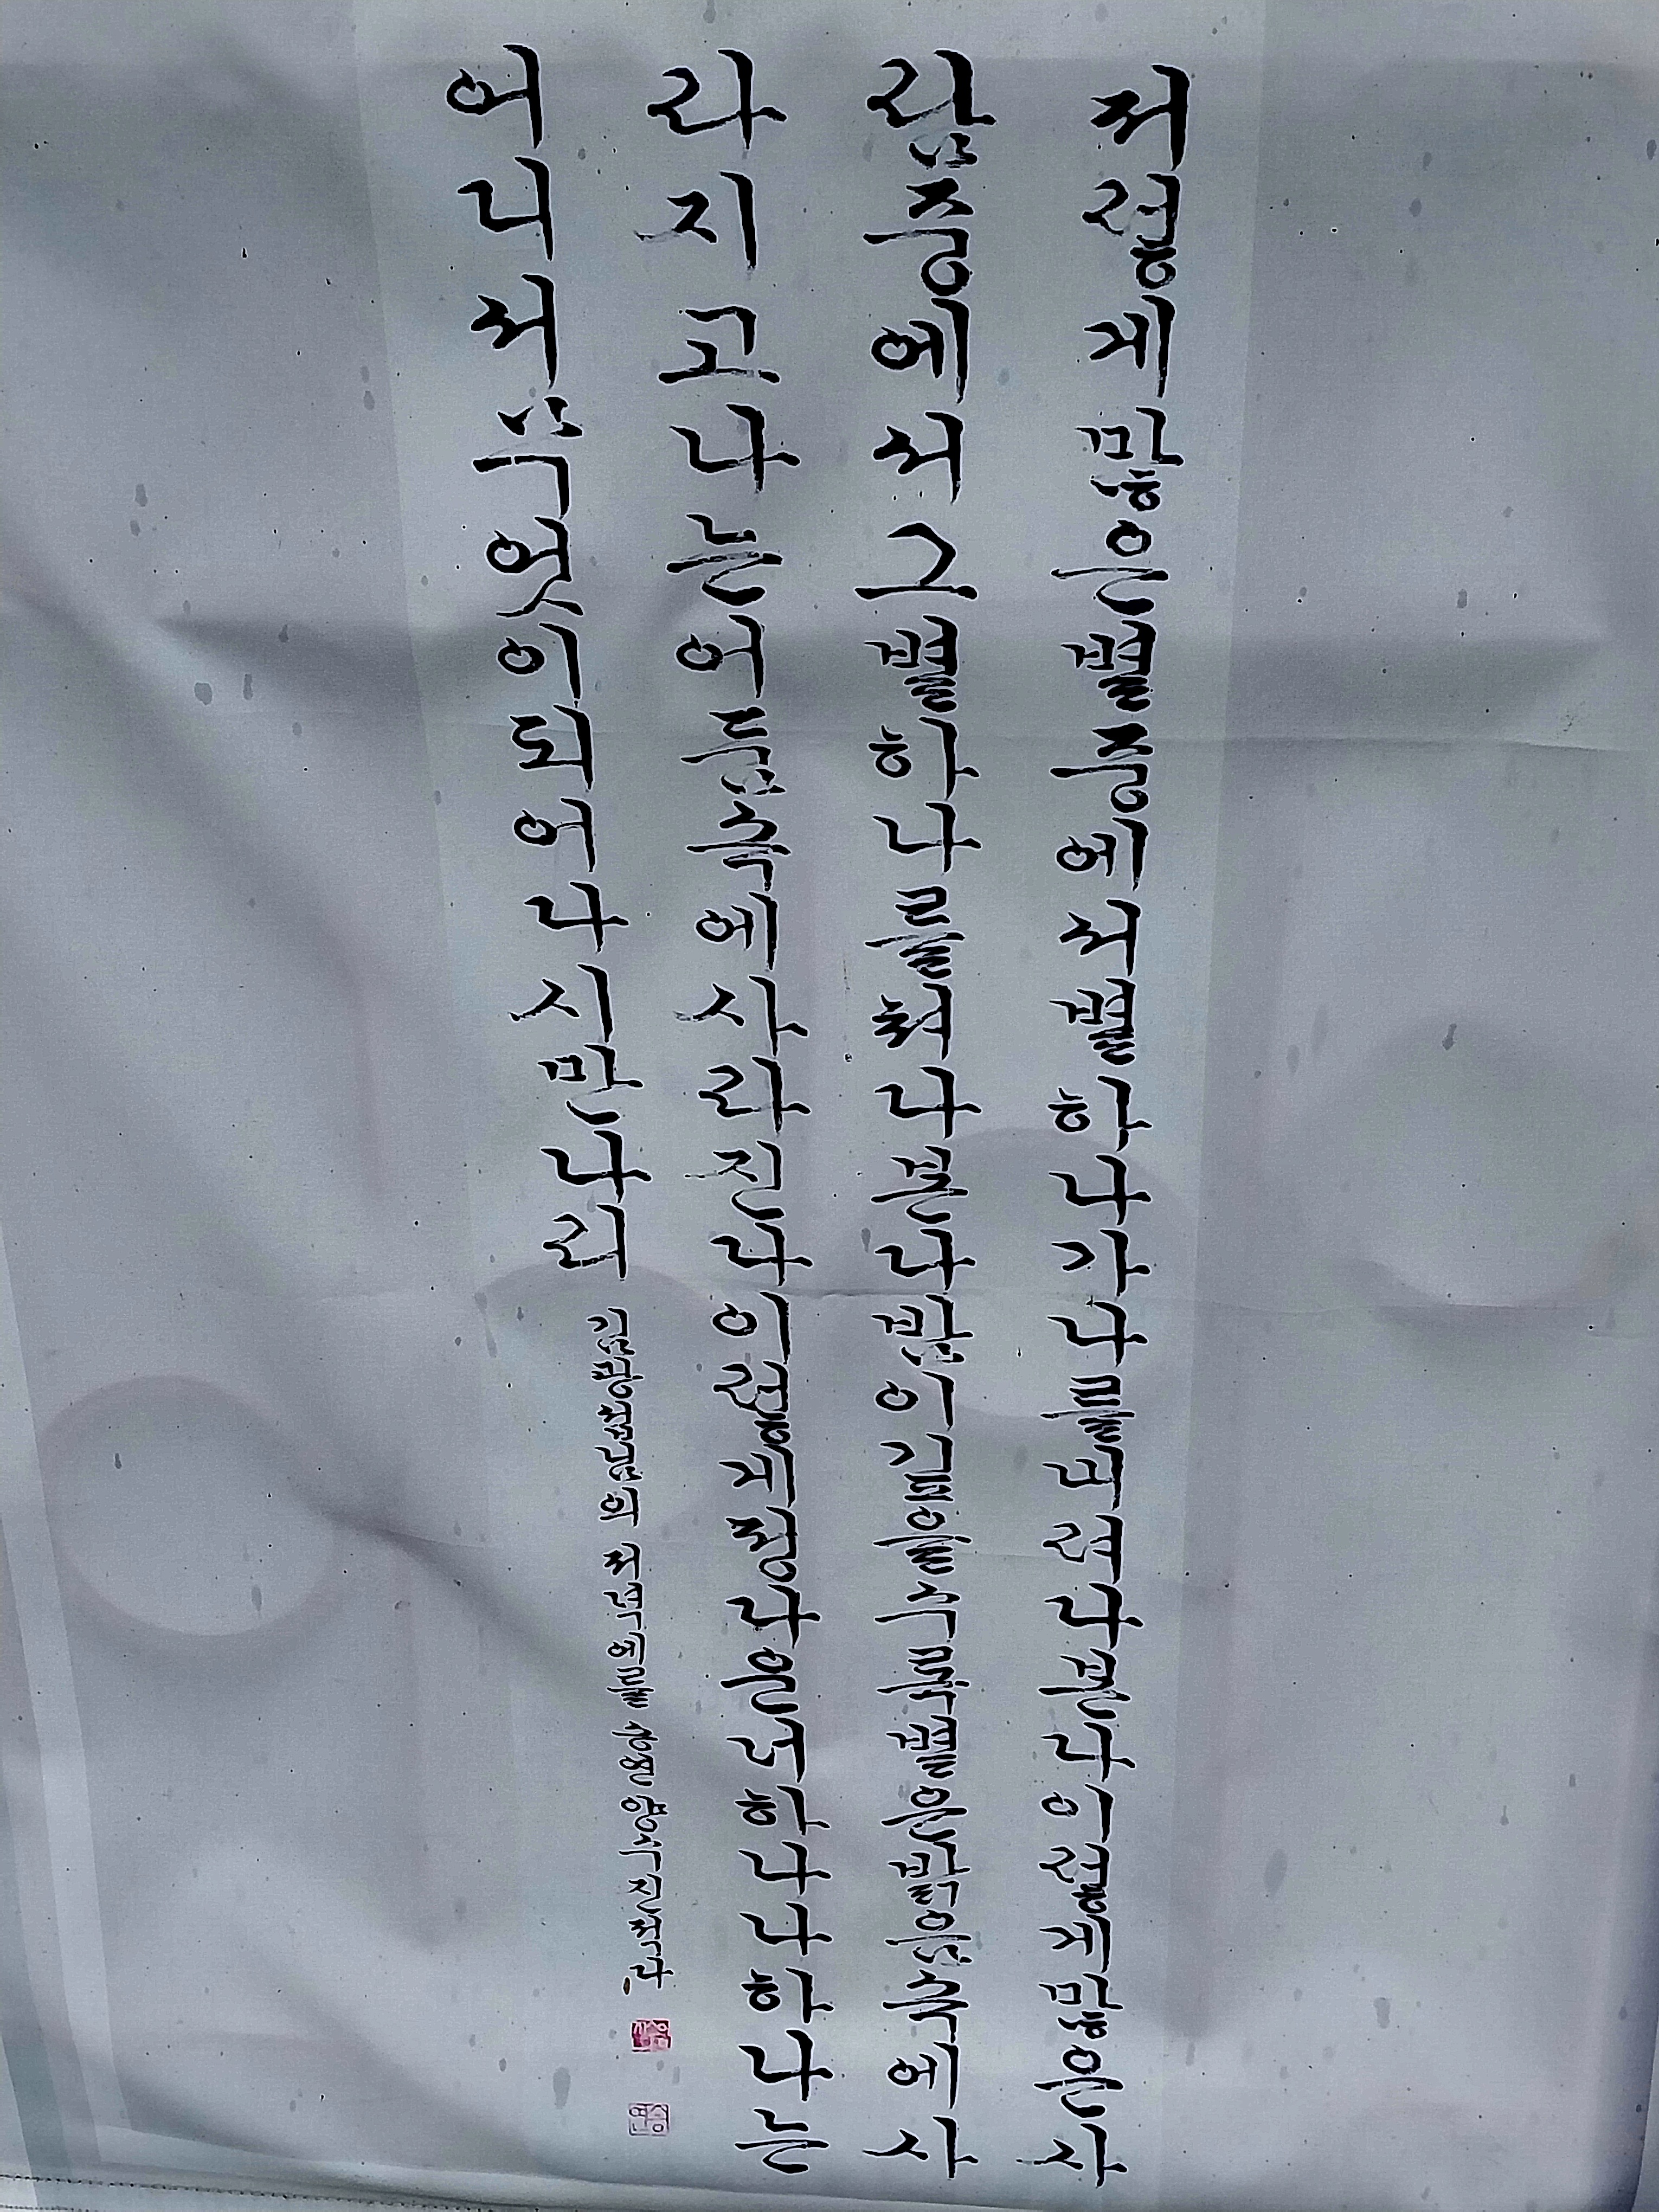 저렇게많은별중에서별하나가나를내려다본다이렇게많은사
람중에서그별하나를쳐다본다밤이깊을수록별은밝음속에사
라지고나는어둠속에사라진다이렇게정다운너하나나하나는
어디서무엇이되어다시만나랴
김광섭시인님의 저녁에를